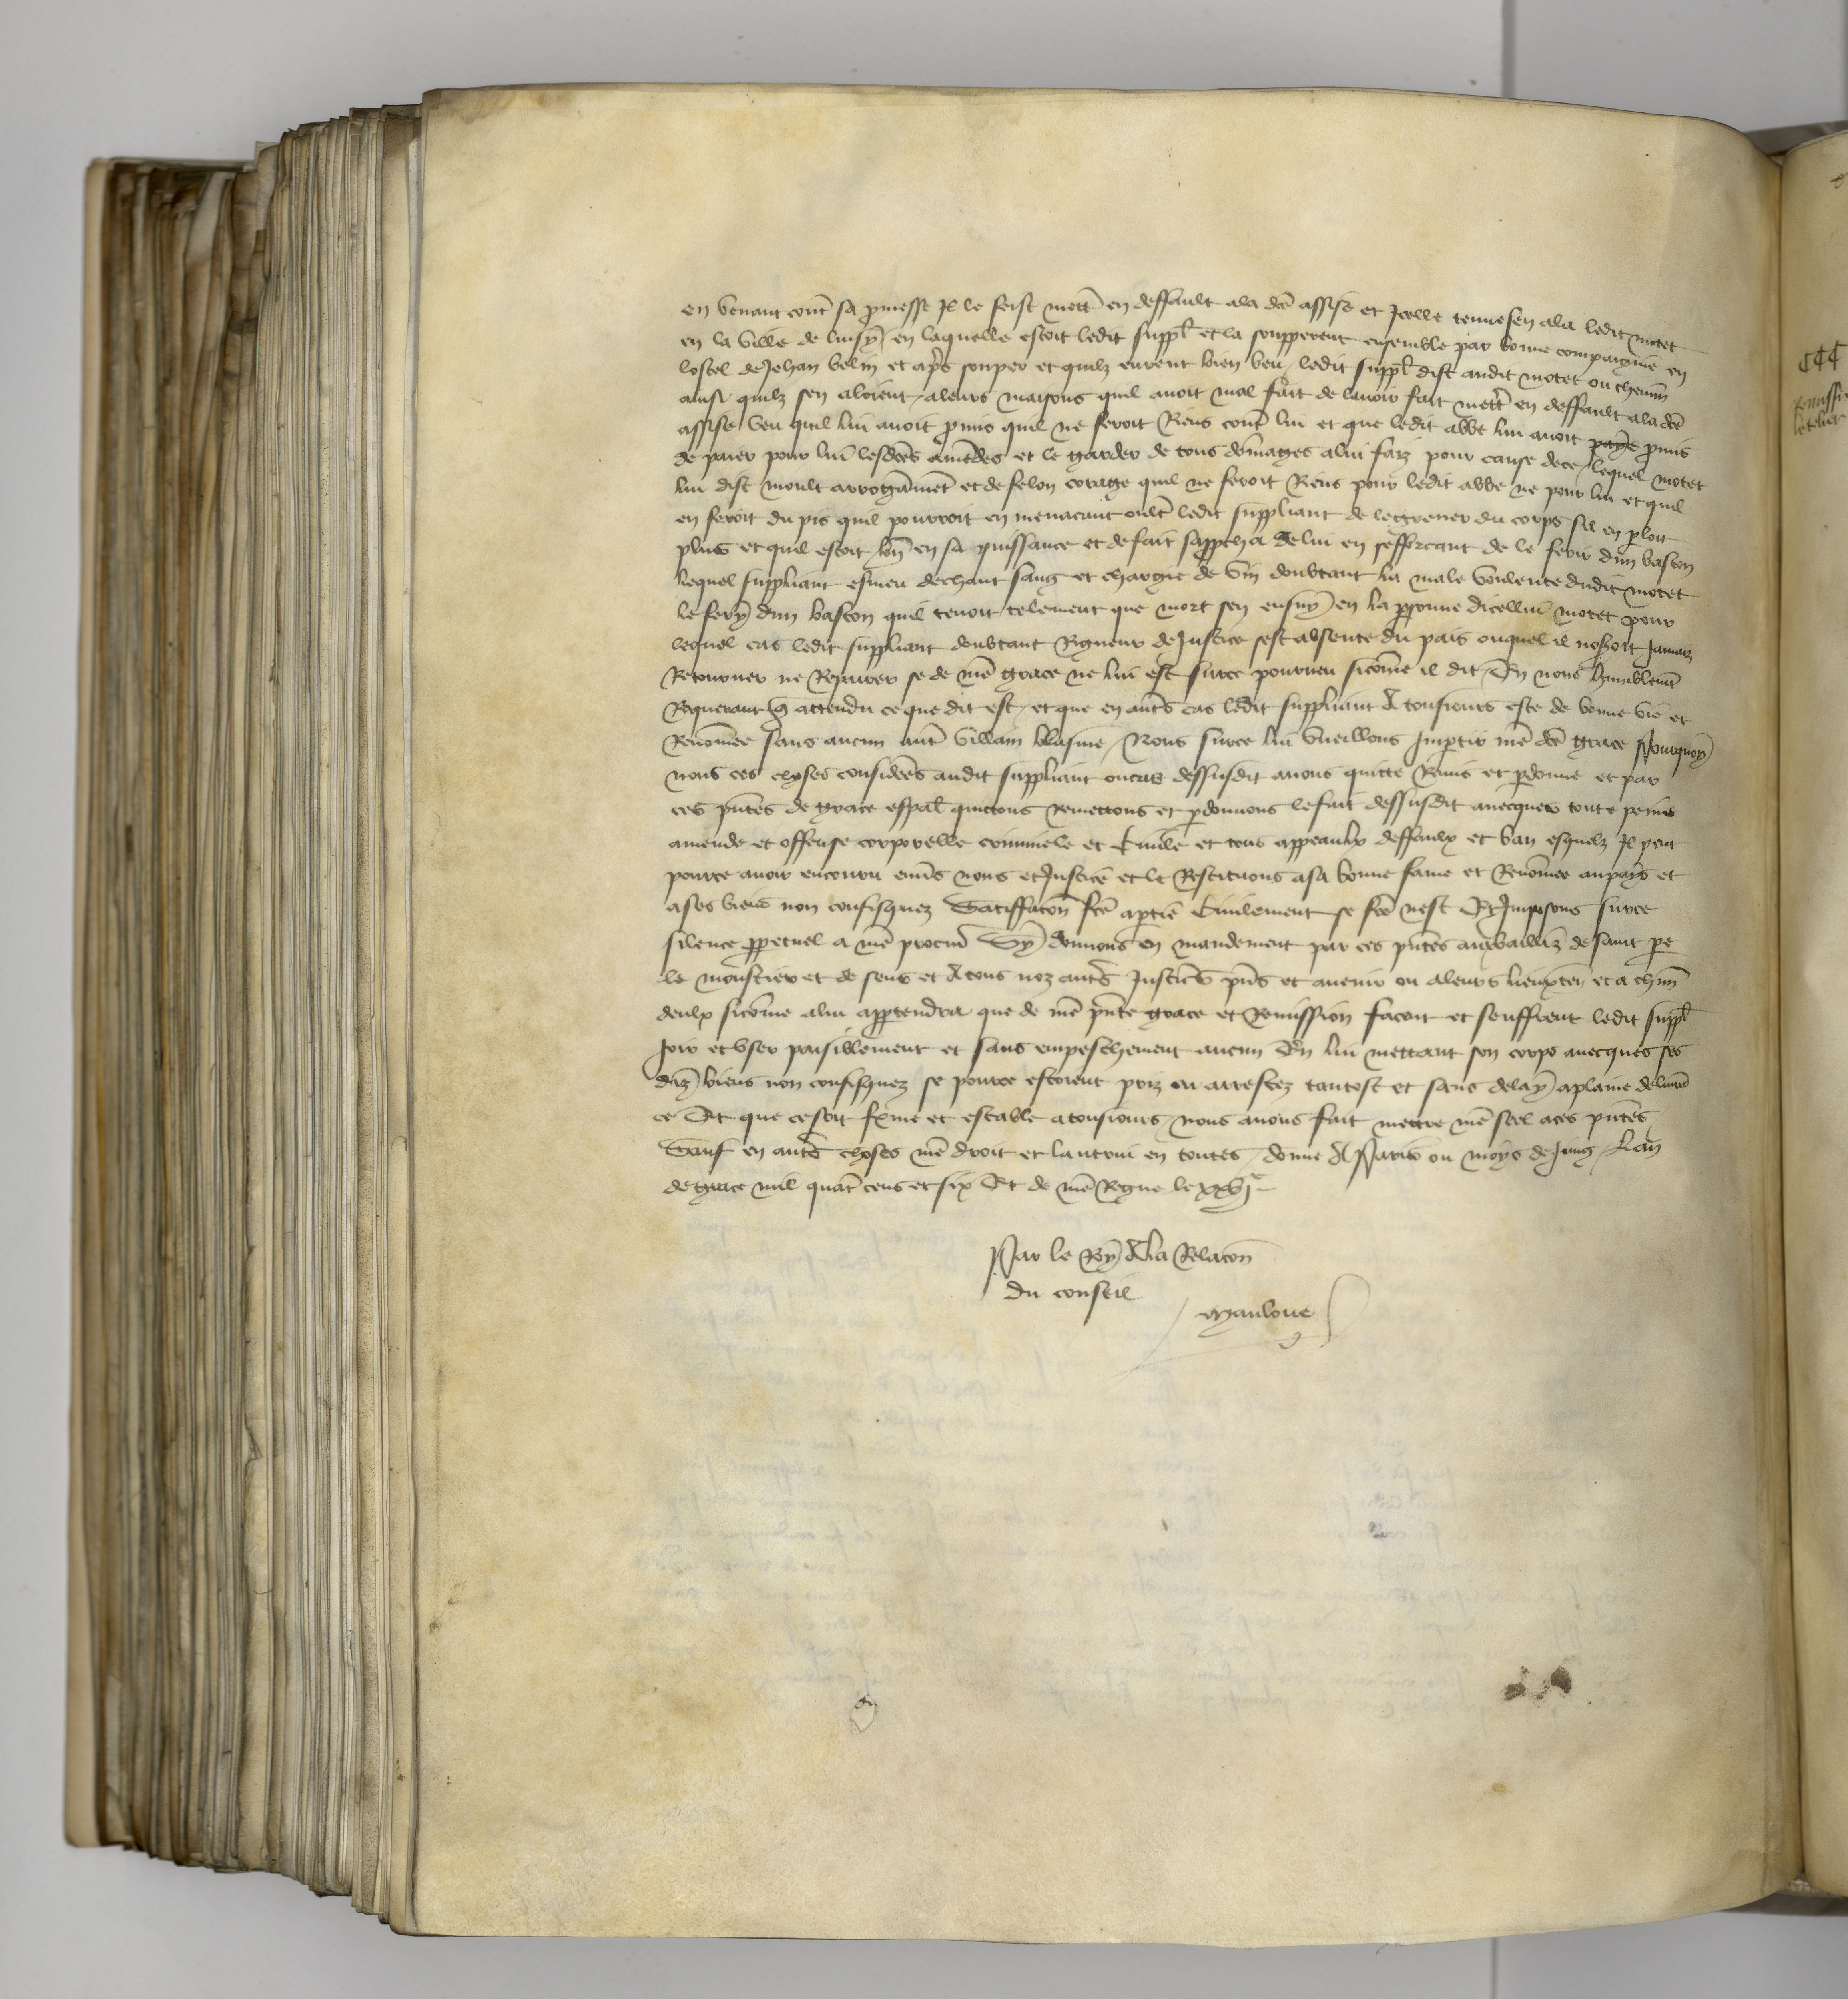 en venant cont̄ sa p̄messe Il le feist mett̄ en deffault ala dc̄e assise et Icelle tenue sen ala ledit motet
en la ville de lusy en laquelle estoit ledit suppl̄ et la soupperent ensemble par bonne compaignie en
lostel de Jehan belin et apr̄s souper et quilz eurent bien beu / ledit suppl̄ dist audit motet ou chemin
ainsi quilz sen aloient aleurs maisons quil auoit mal fait de lauoir fait mett̄ en deffault ala dc̄e
assise veu quil lui auoit p̄mis quil ne feroit Riens cont̄ lui et que ledit abbe lui auoit paye p̄mis
de paier pour lui lesdc̄es amēdes et le garder de tous dōmages alui faiz pour cause de ce / lequel motet
lui dist moult arrogāmēt et de felon corage quil ne feroit Riens pour ledit abbe ne pour lui et quil
en feroit du pis quil pourroit en menacant oult̄ ledit suppliant de le greuer du corps sil en p̄loit
plus et quil estoit bn̄ en sa puissance et de fait sapp̄cha de lui en sefforcant de le ferir dun baston
lequel suppliant esmeu de chaut sang et chargie de vin doubtant la male voulente dudit motet
le fery dun baston quil tenoit telement que mort sen ensuy en la p̄sonne dicellui motet pour
lequel cas ledit suppliant doubtant Rigueur de Justice sest absente du pais ouquel il noseroit Jamaiz
Retourner ne Repairer se de nr̄e grace ne lui est sur ce pourueu sicōme il dit / En nous humblemt̄
Requerant q̄ attendu ce que dit est / et que en aut̄s cas ledit suppliant A tousiours este de bonne vie et
Renōmee sans aucun aut̄ villain blasme / Nous sur ce lui vueillons Imp̄tir nr̄e dc̄e grace Pourquoy
nous ces choses considerēes audit suppliant oucas dessusdit auons quitte Remis et p̄donne et par
ces p̄ntes de grace esp̄al quittons Remettons et p̄donnons le fait dessusdit auecques toute peine
amende et offense corporelle criminele et Ciuile et tous appeaulx deffaulx et ban esquelz Il peut
pour ce auoir encouru enūs nous et Justice et le Restituons asa bonne fame et Renōmee aupays et
ases biens non confisquez Satiffacōn fc̄e aptīe Ciuilement se fc̄e nest Et Imposons sur ce
silence pp̄etuel a nr̄e procur̄ Sy donnons en mandement par ces p̄ntes aux bailliz de saint p̄e
le moustier et de sens et A tous noz aut̄s Justiciēs p̄ns et auenir ou aleurs lieuxten̄ et a chūn
deulx sicōme alui app̄tendra que de nr̄e p̄nte grace et Remission facent et seuffrent ledit suppl̄
Joir et vser paisiblement et sans empeschement aucun En lui mettant son corps auecques ses
diz biens non confisquez se pour ce estoient priz ou arrestez tantost et sans delay aplaine deliurā
ce Et que ce soit ferme et estable atousiours / nous auons fait mettre nr̄e seel aces p̄ntes
Sauf en aut̄s choses nr̄e droit et lautrui en toutes / donne A Paris ou moys de Juing / Lan
de grace mil quat̄ cens et six Et de nr̄e Regne le xxvjᵉ
Par le Roy A la Relacōn
du conseil
Manloue